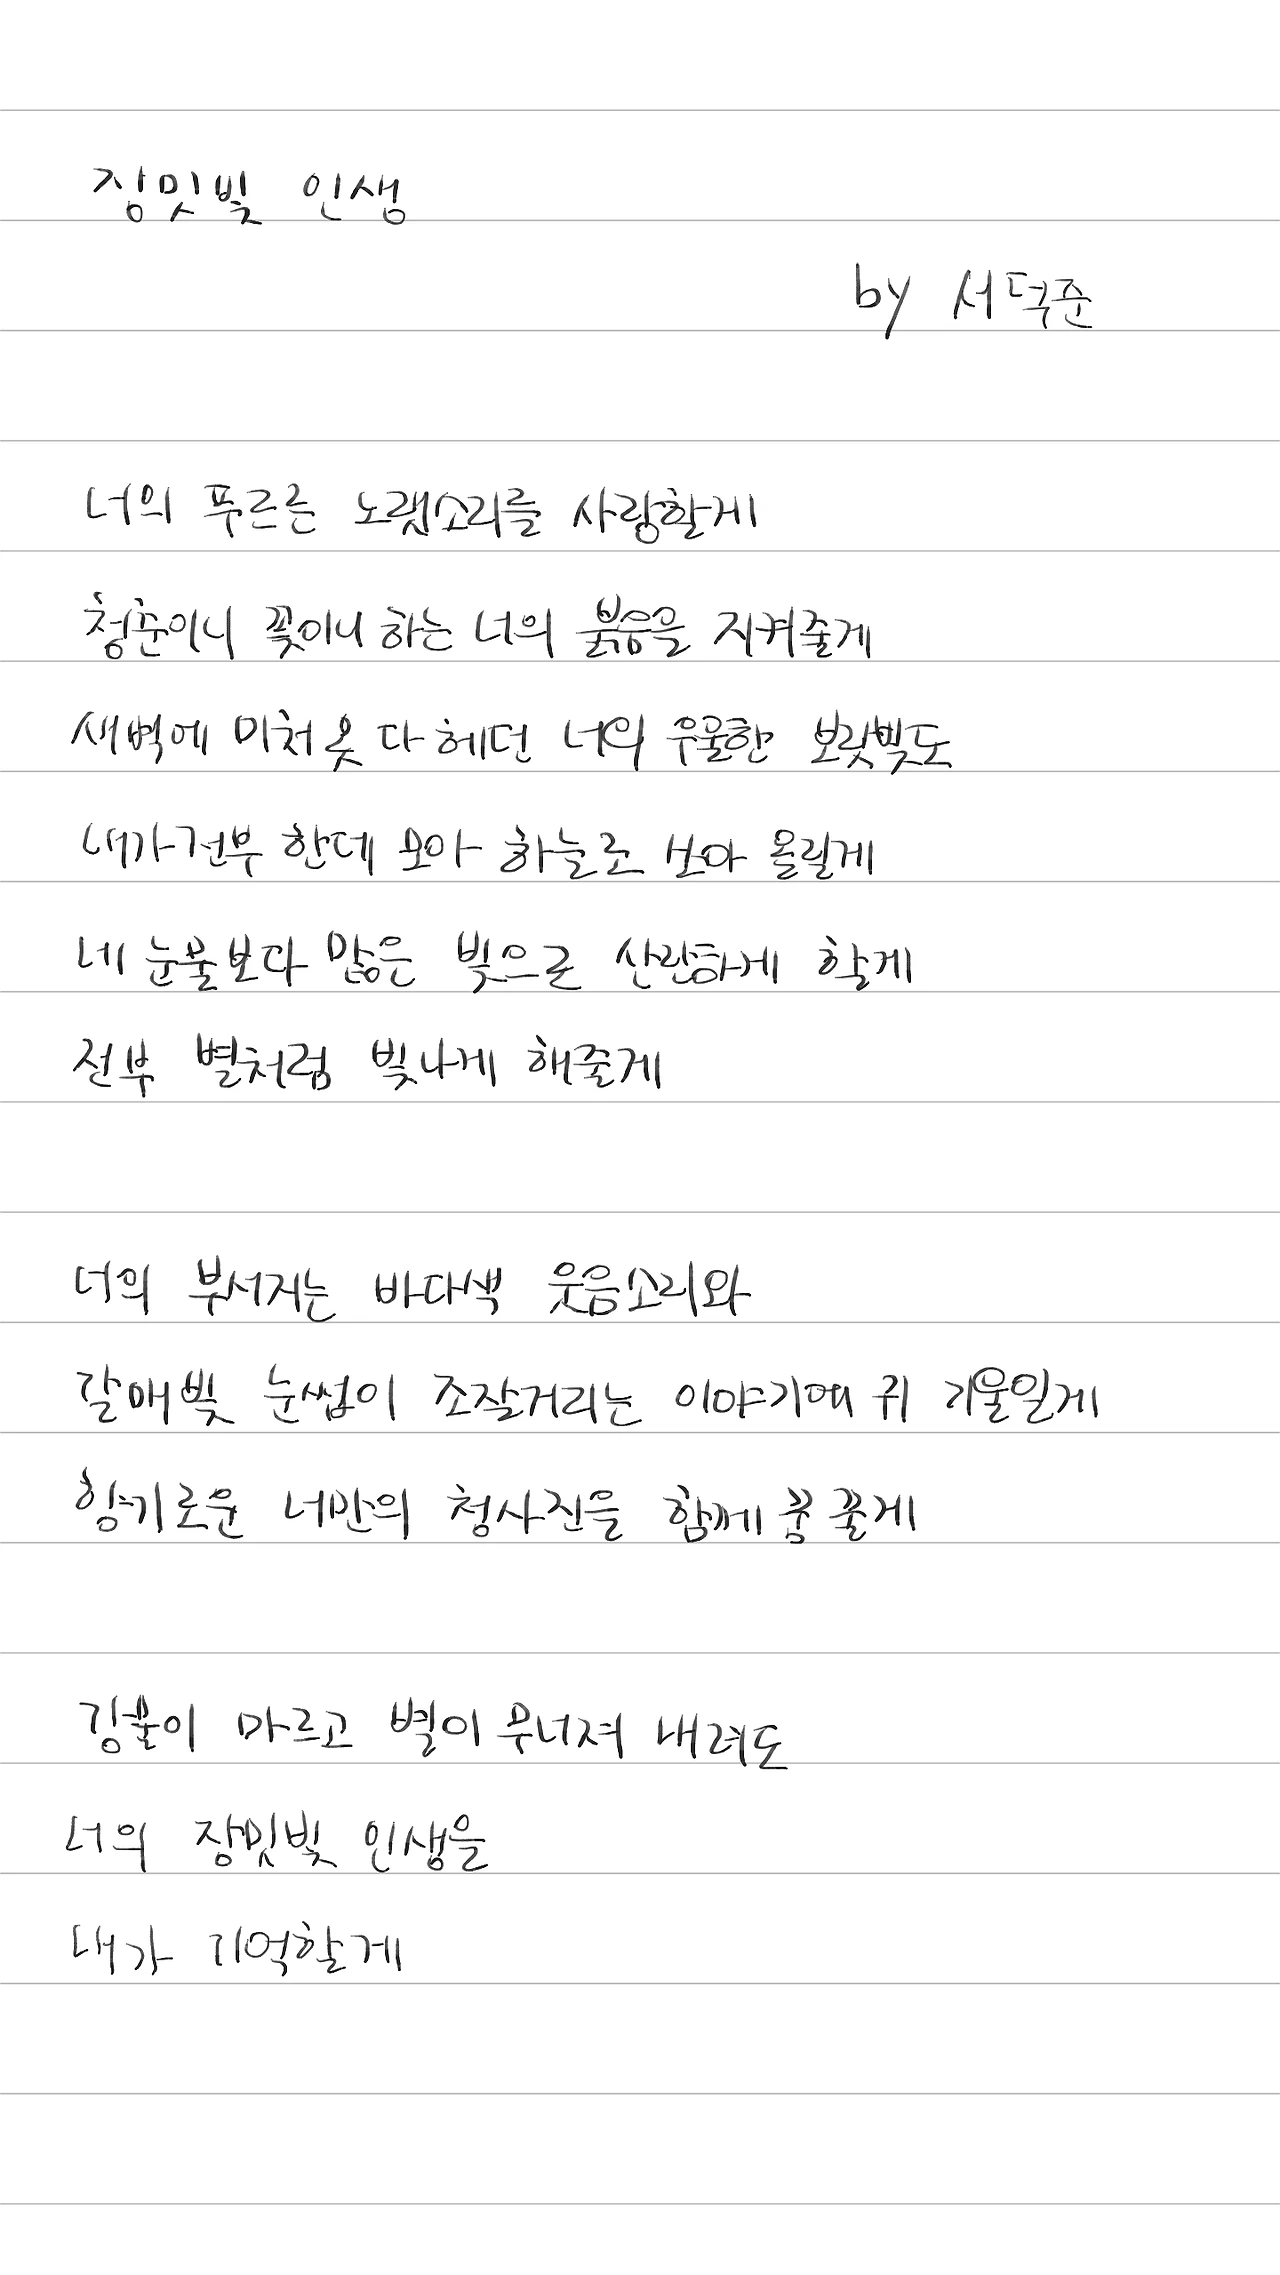 장밋빛 인생
by 서덕준
너의 푸르른 노랫소리를 사랑할게
청춘이니 꽃이니 하는 너의 붉음을 지켜줄게
새벽에 미처 못 다 헤던 너의 우울한 보랏빛도
내가 전부 한데 모아 하늘로 쏘아 올릴게
네 눈물보다 많은 빛으로 산란하게 할게
전부 별처럼 빛나게 해줄게
너의 부서지는 바다색 웃음소리와
갈매빛 눈썹이 조잘거리는 이야기에 귀 기울일게
향기로운 너만의 청사진을 함께 꿈 꿀게
강물이 마르고 별이 무너져 내려도
너의 장밋빛 인생을
내가 기억할게